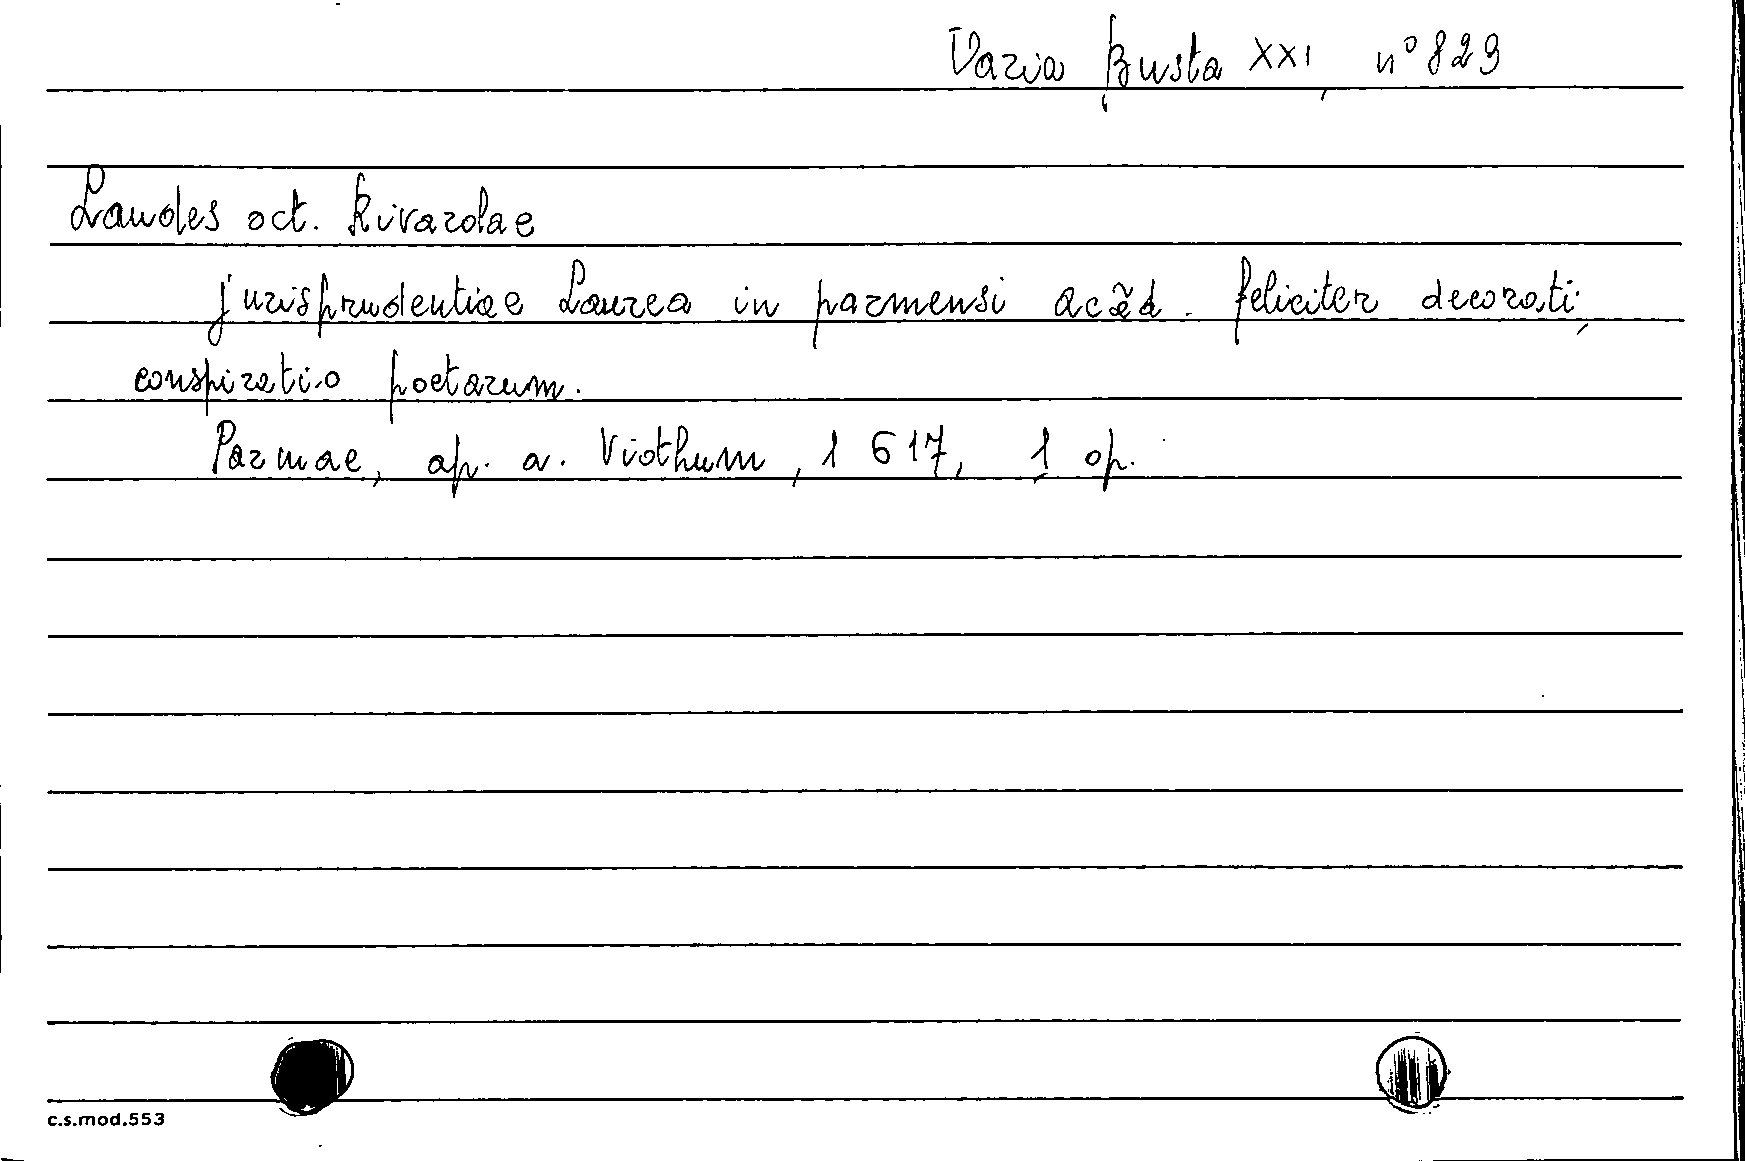 Varia Busta XXI, n° 829
Laudes oct. Rivarolae
jurisprudentiae Laurea in parmensi acãd. feliciter decorati,
conspiratio poetarum.
Parmae, ap. a. Viothum, 1617, 1 op.
c.s.mod.553